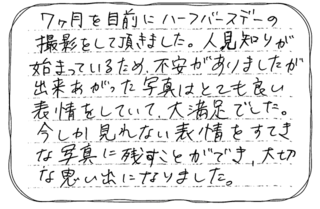 7ヶ月を目前にハーフバースデーの
撮影をして頂きました。人見知りが
始まっているため、不安がありましたが
出来あがった写真はとても良い
表情をしていて、大満足でした。
今しか見れない表情をすてき
な写真に残すことができ、大切
な思い出になりました。